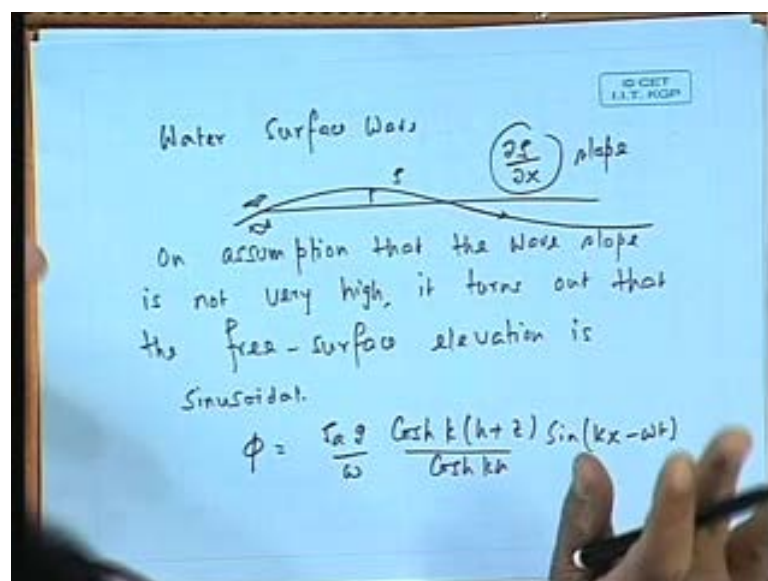 © CET
I.I.T. KGP
Water Surface Wave
∂ζ/∂x slope
ζ
On assumption that the wave slope
is not very high, it turns out that
the free-surface elevation is
Sinusoidal.
φ = ζa g/ω Cosh k(h+z)/Cosh kh Sin(kx-ωt)